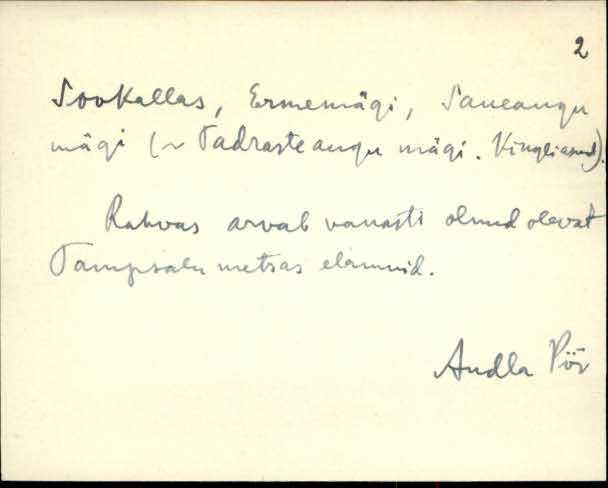 2
Sookallas, Ermemägi, Saueaugu
mägi (~ Tadrasteaugu mägi. Kingliasud).
Rahvas arvab vanasti olnud olevat
Tampsalu metsas elamuid.
Audla Pöi